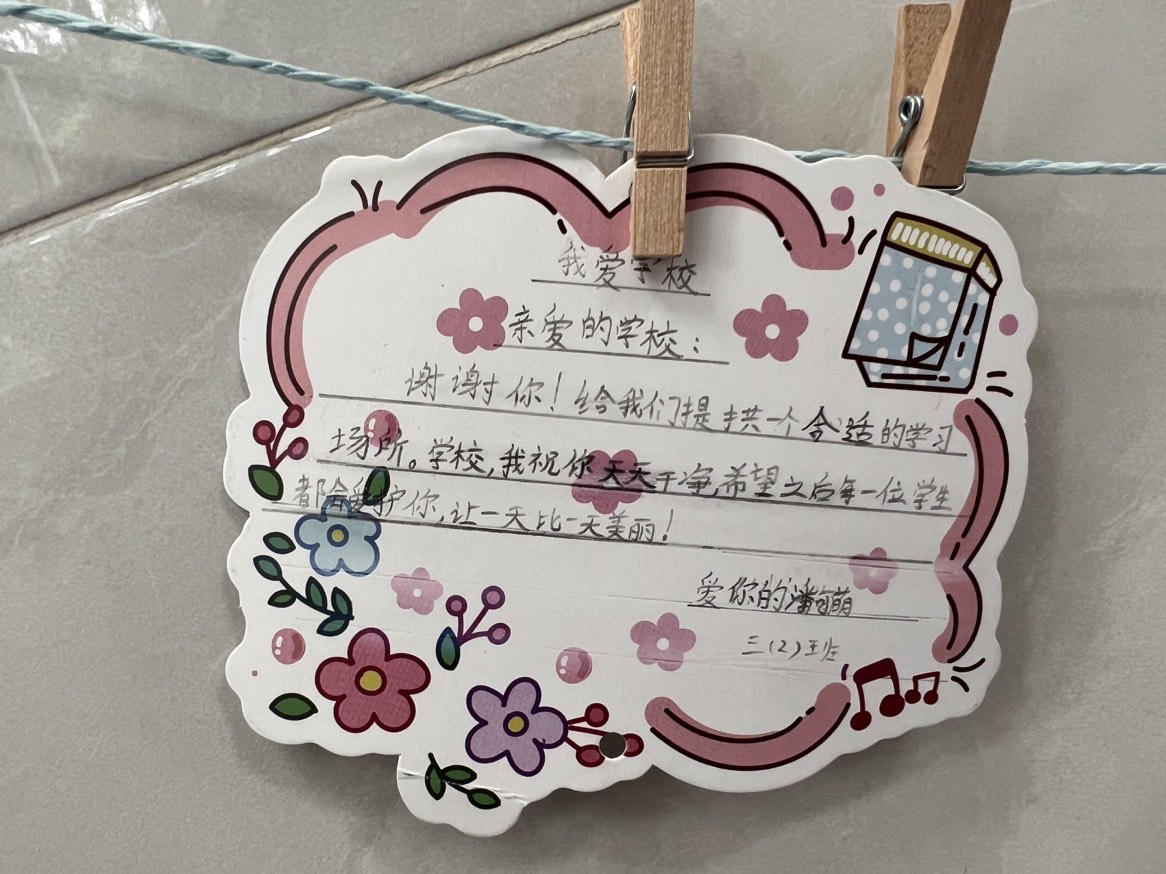 我爱学校
亲爱的学校：
谢谢你！给我们提拱一个合适的学习
场所。学校，我祝你天天干净，希望之后每一位学生
都会爱护你，让一天比一天美丽！
爱你的潘
三（2）班